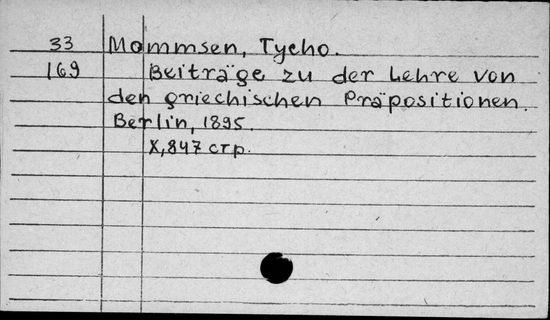 33 Mommsen, Tycho.
169 Beiträge zu der Lehre von
den griechischen Präpositionen.
Berlin, 1895.
X, 847 стр.